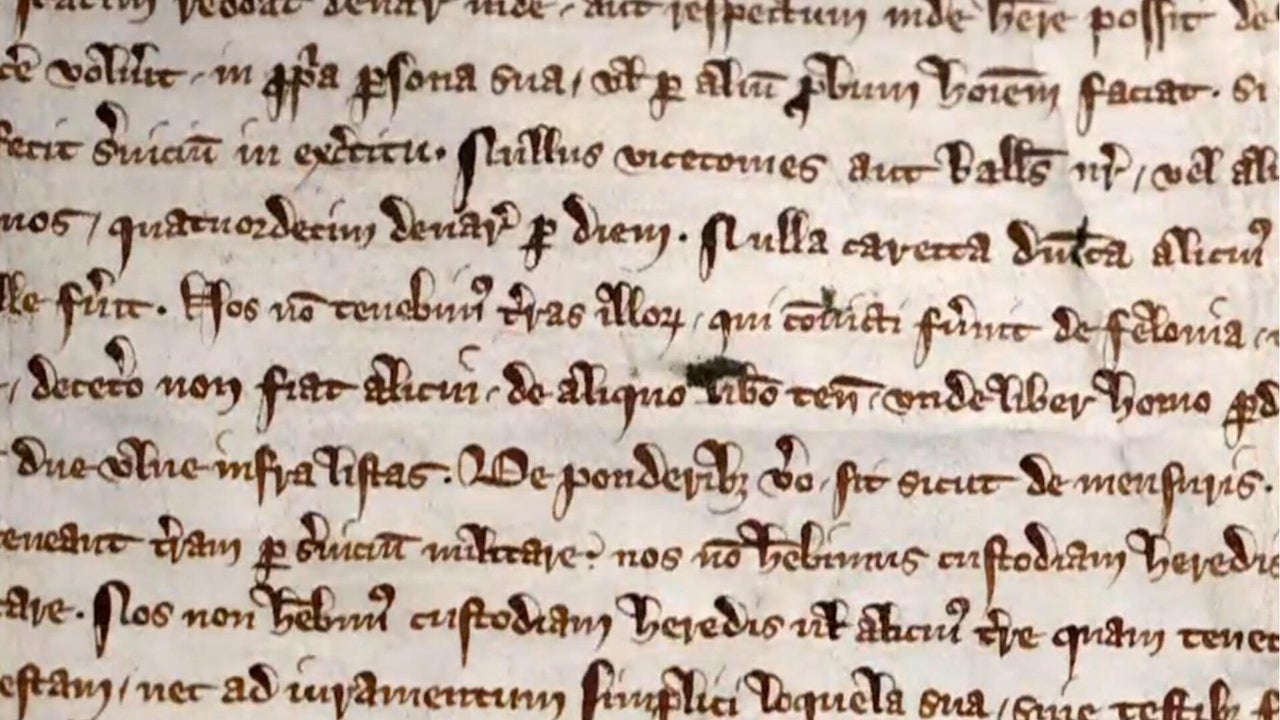 statim reddat denar̄ inde, aut respectum inde hēre possit de
c̄e volu͛it, in ꝓp͛a ꝑsona sua, vl̄ ꝑ aliū ꝓbum hoīem faciat. Si
fecit s͛uiciū in exc͛citu. Nullus vicecomes aut Ball̄s nr̄, vel ali
nos, quatuordecim denar͛ ꝑ diem. Nulla caretta dn̄ica alicuiꝰ
lle fu͛it. Nos nō tenebimꝰ t͛ras illoꝝ, qui cōuicti fu͛int de felonia,
, decet͛o non fiat alicui, de aliquo lib̄o ten̄, vnde liber homo ꝑd
due vlne infra listas. De ponderibꝫ v͛o, sit sicut de mensuris.
teneant t͛ram ꝑ s͛uiciū militare: nos nō hēbimus custodiam heredis
tare. Nos non hēbimꝰ custodiam heredis ul̄ alicuiꝰ t͛re quam tenet
estam, nec ad iuramentum simplici loquela sua, sine testibꝫ f